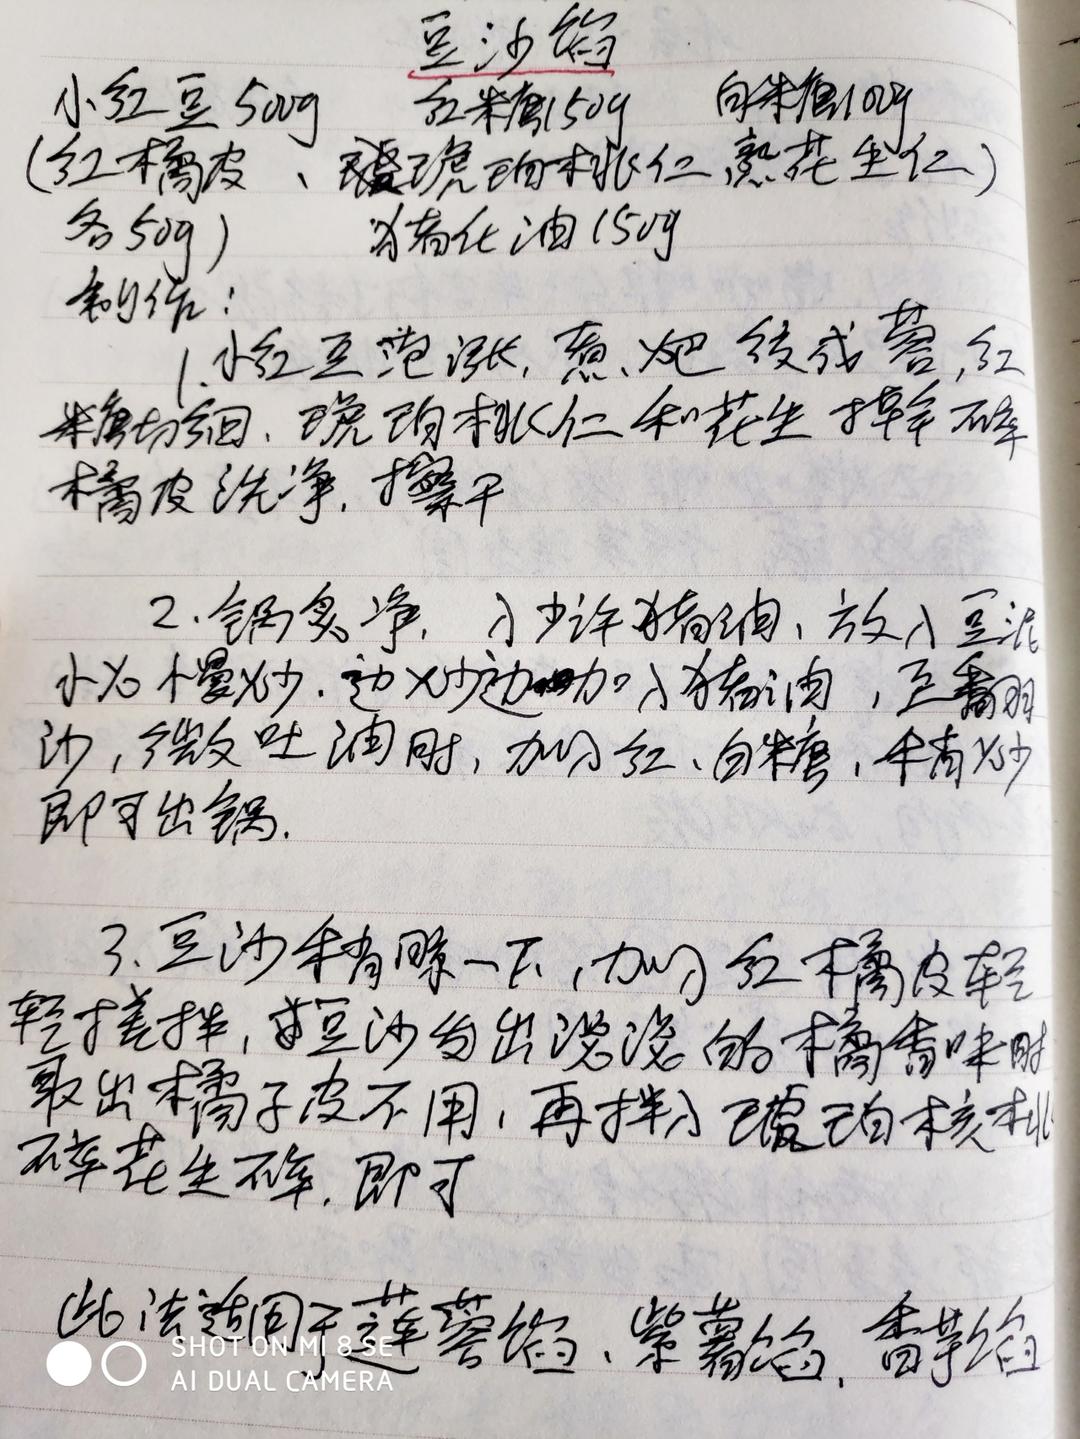 豆沙馅
小红豆500g 红糖150g 白糖100g
(红橘皮、琥珀桃仁 熟花生仁)
各50g) 猪化油150g
制作:
1.小红豆泡涨,煮𤆵绞成蓉,红
糖切细、琥珀桃仁和花生擀碎
橘皮洗净,擦干
2.锅炙净,入少许猪油,放入豆泥
小火慢炒.边炒边加入猪油,至翻
沙,微吐油时,加入红、白糖,稍炒
即可出锅.
3.豆沙稍晾一下,加入红橘皮轻
轻搓拌,待豆沙匀出浓浓的橘香味时
取出橘子皮不用,再拌入琥珀核桃
碎花生碎,即可
此法适同于莲蓉馅、紫薯馅、香芋馅
SHOT ON MI 8 SE
AI DUAL CAMERA